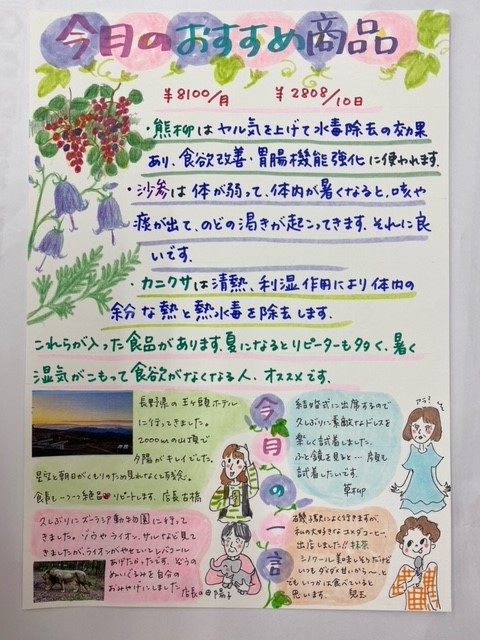 今月のおすすめ商品
¥8100/月 ¥2808/10日
・熊柳はヤル気を上げて水毒除去の効果
あり、食欲改善・胃腸機能強化に使われます.
・沙参は体が弱って、体内が暑くなると、咳や
痰が出て、のどの渇きが起こってきます。それに良
いです.
・カニクサは清熱、利湿作用により体内の
余分な熱と熱水毒を除去します.
これらが入った食品があります.夏になるとリピーターも多く、暑く
湿気がこもって食欲がなくなる人、オススメです.
今月の一言
長野県の王ヶ頭ホテル
に行ってきました。
2000mの山頂で
夕陽がキレイでした。
星空と朝日がくもりのため見れなくて
食事も一つ一つ絶品 リピートします. 店長 古橋
結婚式に出席するので
久しぶりに素敵なドレスを
楽しく試着しました.
ふと鏡を見ると…
試着したいです.
アラ!
久しぶりにズーラシア動物園に行って
きました。ゾウやライオン、サルなど見て
きましたが、ライオンがやせていてレバコール
あげたかったです。ぞうの
ぬいぐるみを自分の
おみやげにしました
磯子駅によく行きますが、
私の大好きなコメダコーヒー、
出店しました!! 抹茶
シノワール美味しそうだけど
いつもダメダメ甘いから〜、と
でもいつかは食べていると
思います. 児玉